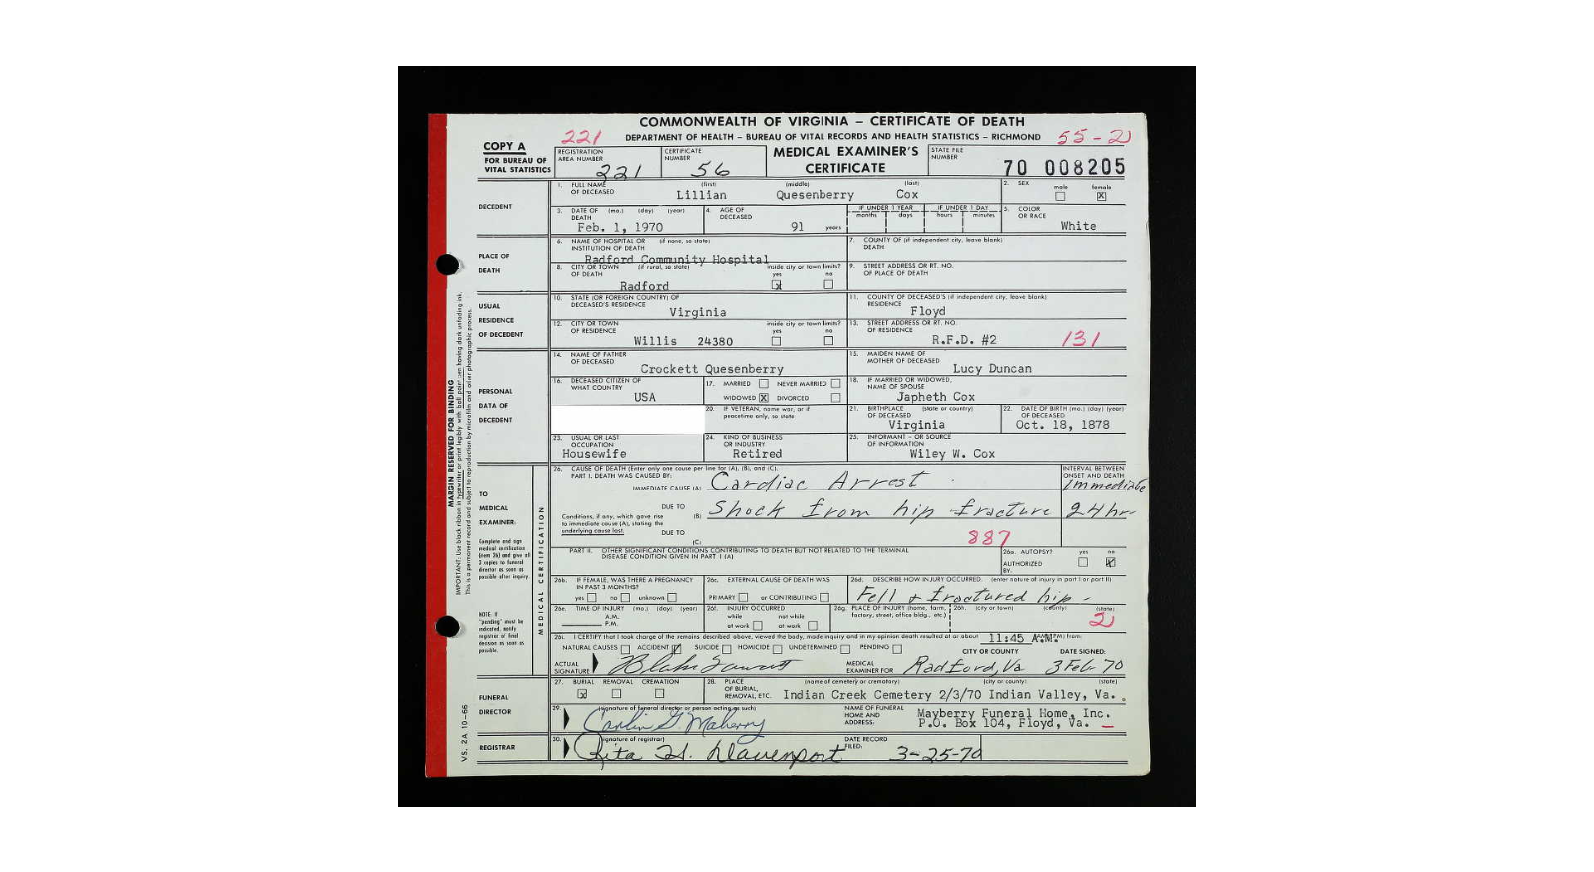 COMMONWEALTH OF VIRGINIA – CERTIFICATE OF DEATH
221 DEPARTMENT OF HEALTH – BUREAU OF VITAL RECORDS AND HEALTH STATISTICS – RICHMOND 55-2
COPY A
FOR BUREAU OF VITAL STATISTICS
REGISTRATION AREA NUMBER 221
CERTIFICATE NUMBER 56
MEDICAL EXAMINER'S CERTIFICATE
STATE FILE NUMBER 70 008205
DECEDENT
1. FULL NAME OF DECEASED (first) (middle) (last)
Lillian Quesenberry Cox
2. SEX male female X
3. DATE OF DEATH (mo.) (day) (year)
Feb. 1, 1970
4. AGE OF DECEASED 91 years
IF UNDER 1 YEAR months days
IF UNDER 1 DAY hours minutes
5. COLOR OR RACE White
PLACE OF DEATH
6. NAME OF HOSPITAL OR INSTITUTION OF DEATH (if none, so state)
Radford Community Hospital
7. COUNTY OF DEATH (if independent city, leave blank)
8. CITY OR TOWN OF DEATH (if rural, so state)
Radford
inside city or town limits? yes X no
9. STREET ADDRESS OR RT. NO. OF PLACE OF DEATH
USUAL RESIDENCE OF DECEDENT
10. STATE (OR FOREIGN COUNTRY) OF DECEASED'S RESIDENCE
Virginia
11. COUNTY OF DECEASED'S RESIDENCE (if independent city, leave blank)
Floyd
12. CITY OR TOWN OF RESIDENCE
Willis 24380
inside city or town limits? yes no
13. STREET ADDRESS OR RT. NO. OF RESIDENCE
R.F.D. #2 131
PERSONAL DATA OF DECEDENT
14. NAME OF FATHER OF DECEASED
Crockett Quesenberry
15. MAIDEN NAME OF MOTHER OF DECEASED
Lucy Duncan
16. DECEASED CITIZEN OF WHAT COUNTRY
USA
17. MARRIED NEVER MARRIED
WIDOWED X DIVORCED
18. IF MARRIED OR WIDOWED, NAME OF SPOUSE
Japheth Cox
20. IF VETERAN, name war, or if peacetime only, so state
21. BIRTHPLACE OF DECEASED (state or country)
Virginia
22. DATE OF BIRTH OF DECEASED (mo.) (day) (year)
Oct. 18, 1878
23. USUAL OR LAST OCCUPATION
Housewife
24. KIND OF BUSINESS OR INDUSTRY
Retired
25. INFORMANT – OR SOURCE OF INFORMATION
Wiley W. Cox
TO MEDICAL EXAMINER:
Complete and sign medical certification (item 26) and give all 3 copies to funeral director as soon as possible after inquiry.
NOTE: If "pending" must be indicated, notify registrar of final decision as soon as possible.
MEDICAL CERTIFICATION
26. CAUSE OF DEATH (Enter only one cause per line for (A), (B), and (C).
PART I. DEATH WAS CAUSED BY:
INTERVAL BETWEEN ONSET AND DEATH
IMMEDIATE CAUSE (A) Cardiac Arrest Immediate
DUE TO
(B) Shock from hip fracture 24 hr
Conditions, if any, which gave rise to immediate cause (A), stating the underlying cause last.
DUE TO
(C) 887
PART II. OTHER SIGNIFICANT CONDITIONS CONTRIBUTING TO DEATH BUT NOT RELATED TO THE TERMINAL DISEASE CONDITION GIVEN IN PART I (A)
26a. AUTOPSY? yes no X
AUTHORIZED BY:
26b. IF FEMALE, WAS THERE A PREGNANCY IN PAST 3 MONTHS?
yes no unknown
26c. EXTERNAL CAUSE OF DEATH WAS
PRIMARY or CONTRIBUTING
26d. DESCRIBE HOW INJURY OCCURRED (enter nature of injury in part I or part II)
Fell & fractured hip -
26e. TIME OF INJURY (mo.) (day) (year)
A.M.
P.M.
26f. INJURY OCCURRED
while at work not while at work
26g. PLACE OF INJURY (home, farm, factory, street, office bldg., etc.)
26h. (city or town) (county) (state)
2
26i. I CERTIFY that I took charge of the remains described above, viewed the body, made inquiry and in my opinion death resulted at or about 11:45 A.M. from:
NATURAL CAUSES ACCIDENT SUICIDE HOMICIDE UNDETERMINED PENDING
CITY OR COUNTY DATE SIGNED:
ACTUAL SIGNATURE
MEDICAL EXAMINER FOR Radford, Va 3 Feb 70
FUNERAL DIRECTOR
27. BURIAL X REMOVAL CREMATION
28. PLACE OF BURIAL, REMOVAL, ETC. (name of cemetery or crematory) (city or county) (state)
Indian Creek Cemetery 2/3/70 Indian Valley, Va.
29. (signature of funeral director or person acting as such)
NAME OF FUNERAL HOME AND ADDRESS:
Mayberry Funeral Home, Inc.
P.O. Box 104, Floyd, Va.
REGISTRAR
30. (signature of registrar)
Rita H. Davenport
DATE RECORD FILED: 3-25-70
MARGIN RESERVED FOR BINDING
IMPORTANT: Use black ribbon in typewriter or print legibly with ball point pen having dark unfading ink.
This is a permanent record and subject to reproduction by microfilm and other photographic process.
VS. 2A 10-66